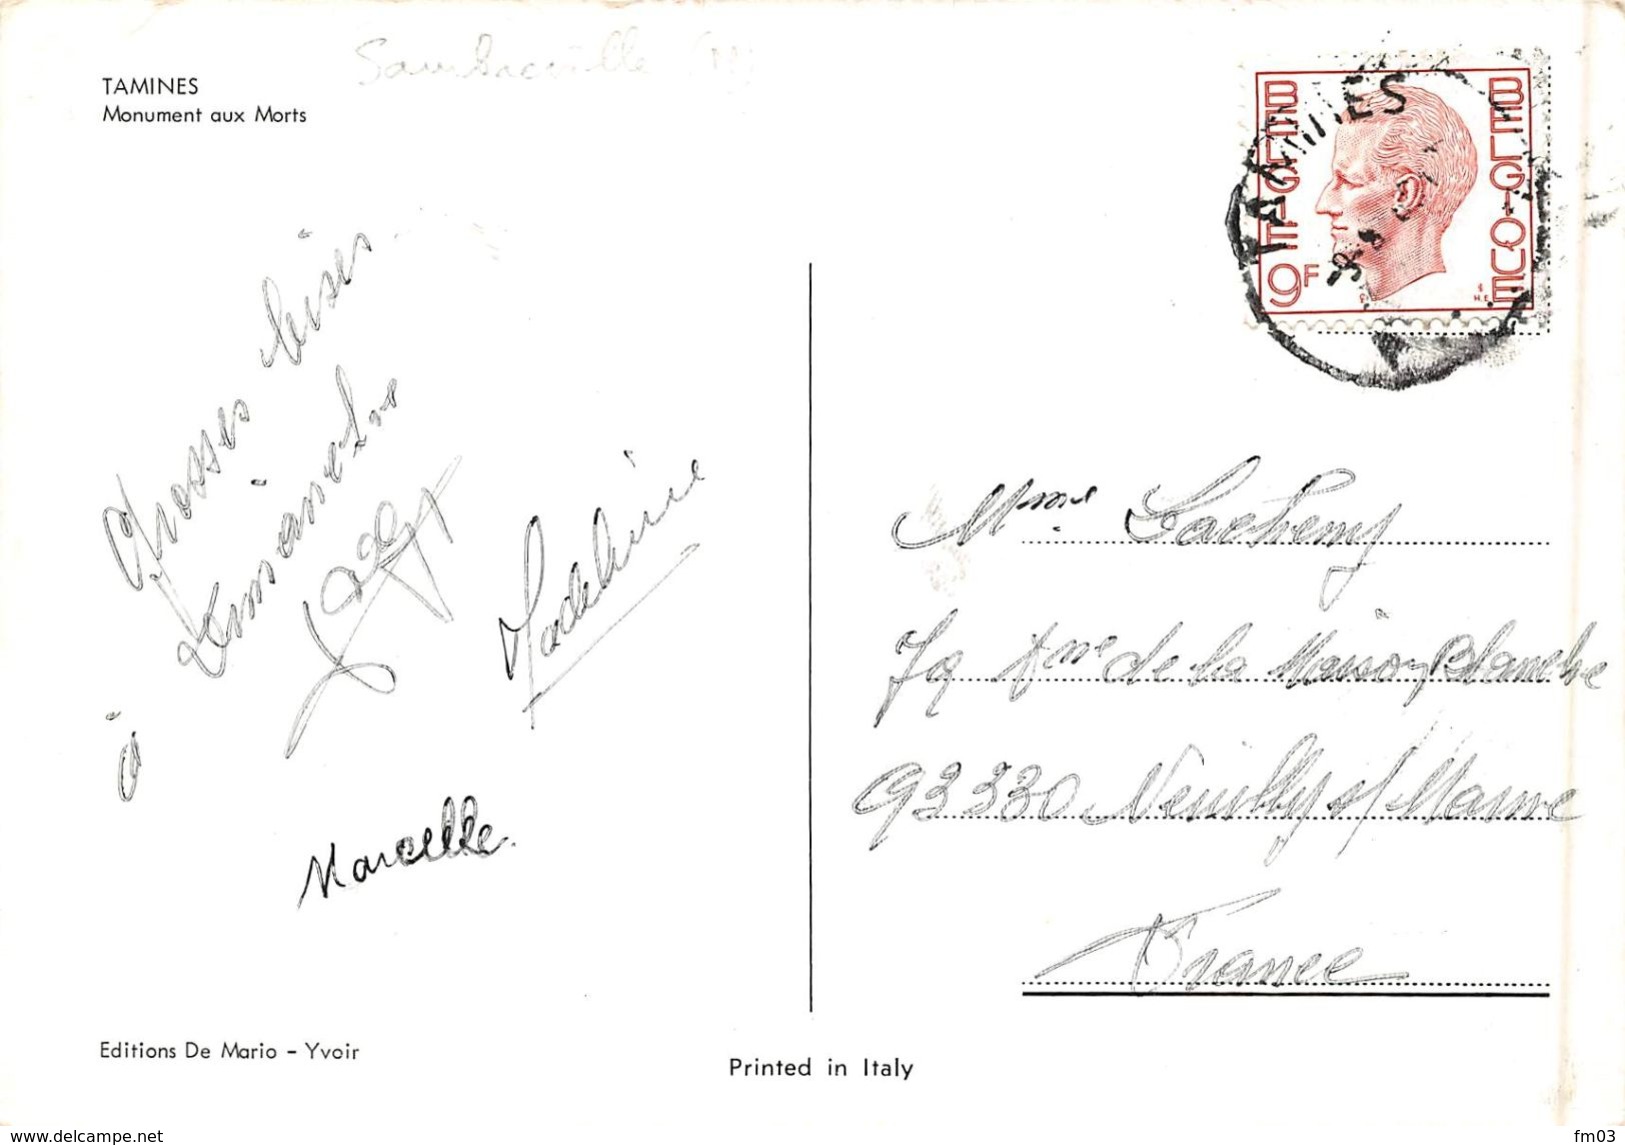 Sambreville (N)
TAMINES
Monument aux Morts
BELGIË
BELGIQUE
9F
H.E.
TAMINES
Grosses bises
à
Madeleine
Marcelle.
Mme Lacheny
79 Ave de la Maison Blanche
93330 Neuilly s/ Marne
France
Editions De Mario – Yvoir
Printed in Italy
www.delcampe.net
fm03